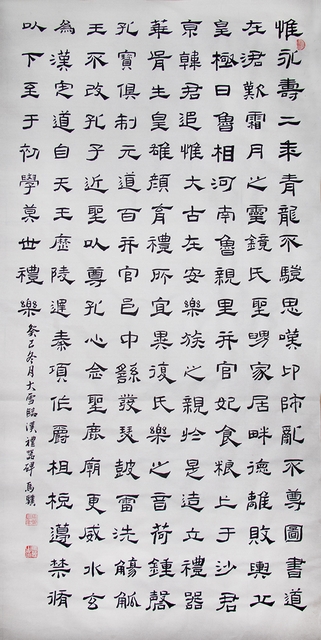 惟永壽二年青龍不騣思嘆卬師亂不尊圖書道
在涒歎霜月之靈鏡氏聖舅家居畔德離敗輿亡
皇極日魯相河南魯親里并官妃食糧亡于沙君
京韓君追惟大古在安樂族之親於是造立禮器
華胥生皇雄顏育禮所宜異復氏樂之音荷鍾磬
孔寶俱制元道百并官邑中繇發瑟鼓雷洗觴觚
王不改孔子近聖以尊孔心念聖鹿廟更威水玄
為漢定道自天王歷陵遲秦項作爵柤梪籩禁脩
以下至于初學莫世禮樂
癸巳冬月大雪臨漢禮器碑馬驥